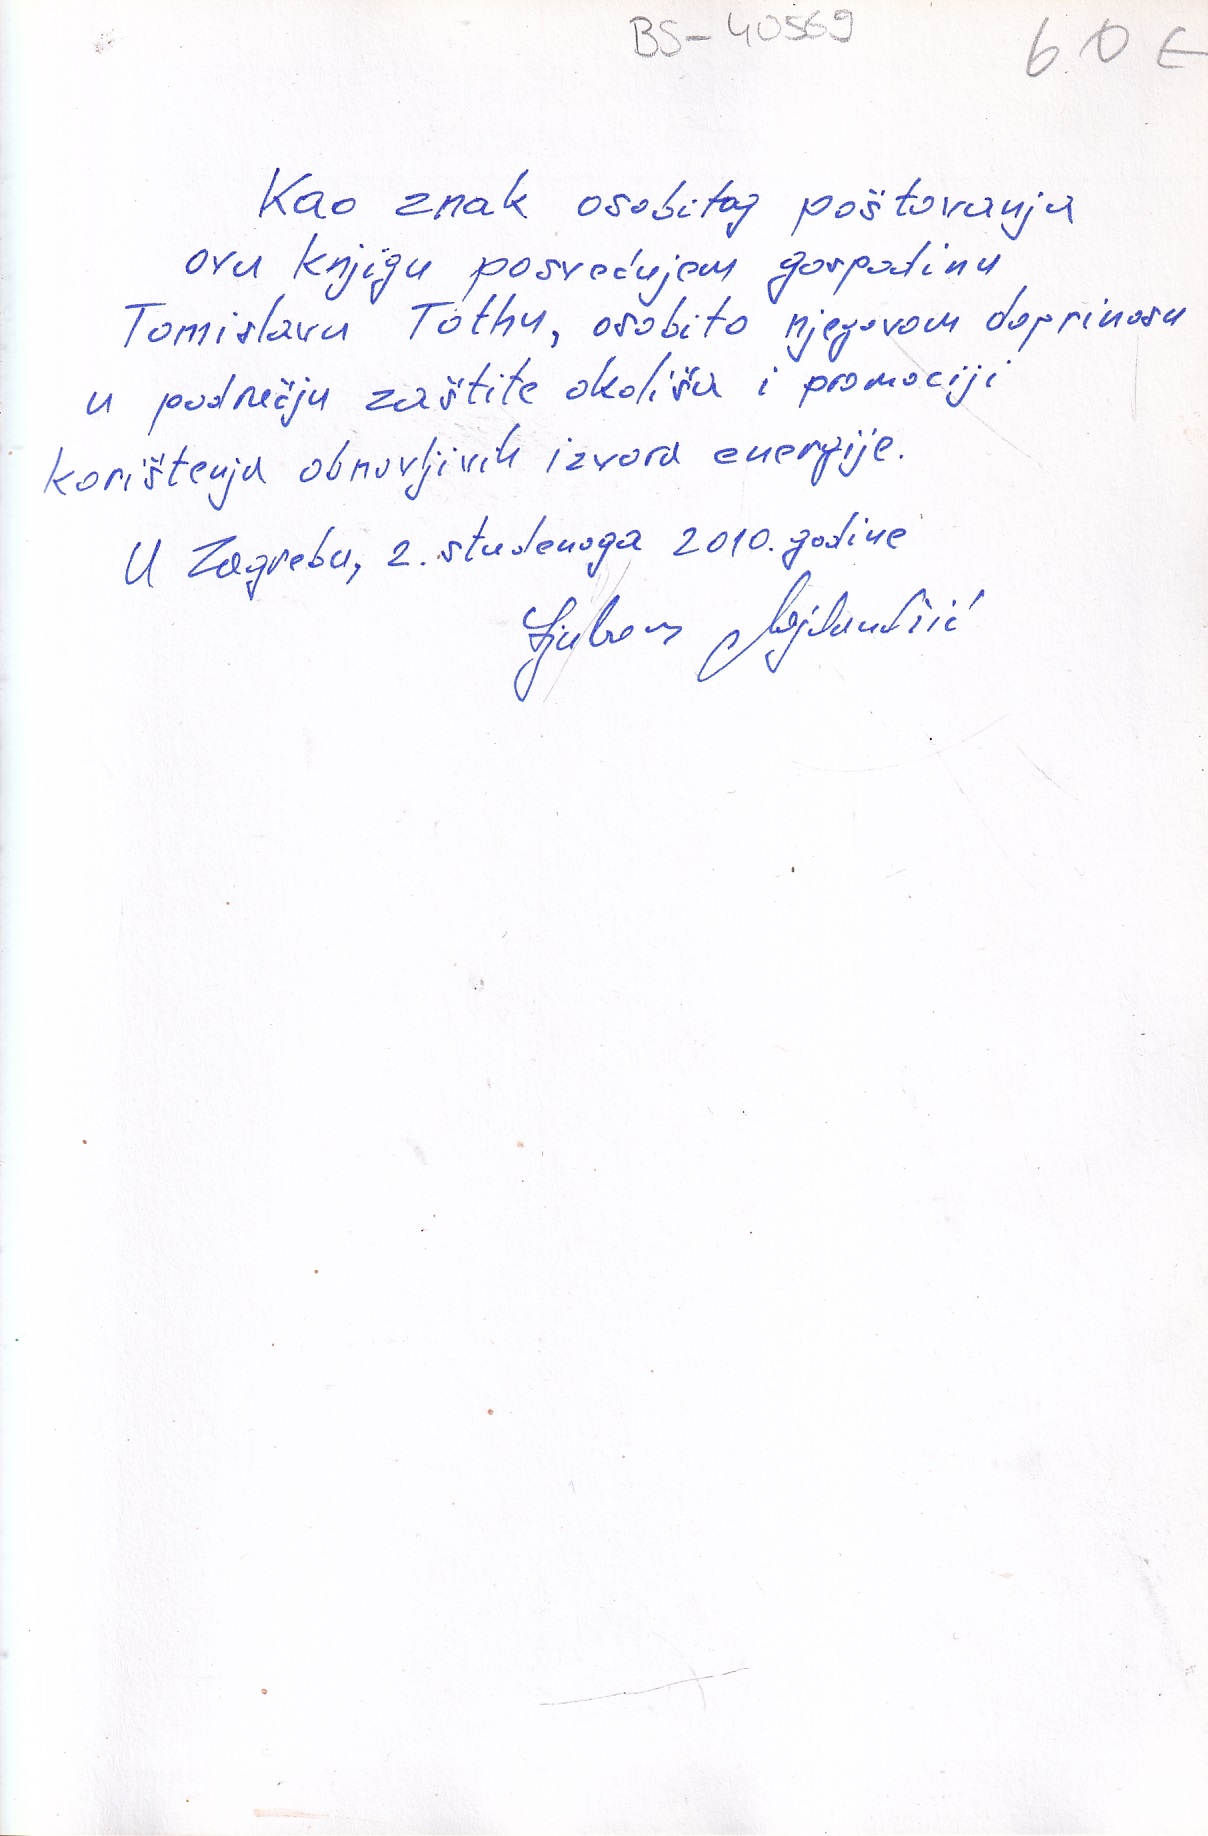 BS-40569
60 €
Kao znak osobitog poštovanja
ovu knjigu posvećujem gospodinu
Tomislavu Tothu, osobito njegovom doprinosu
u području zaštite okoliša i promociji
korištenja obnovljivih izvora energije.
U Zagrebu, 2. studenoga 2010. godine
Ljubomir Majdandžić